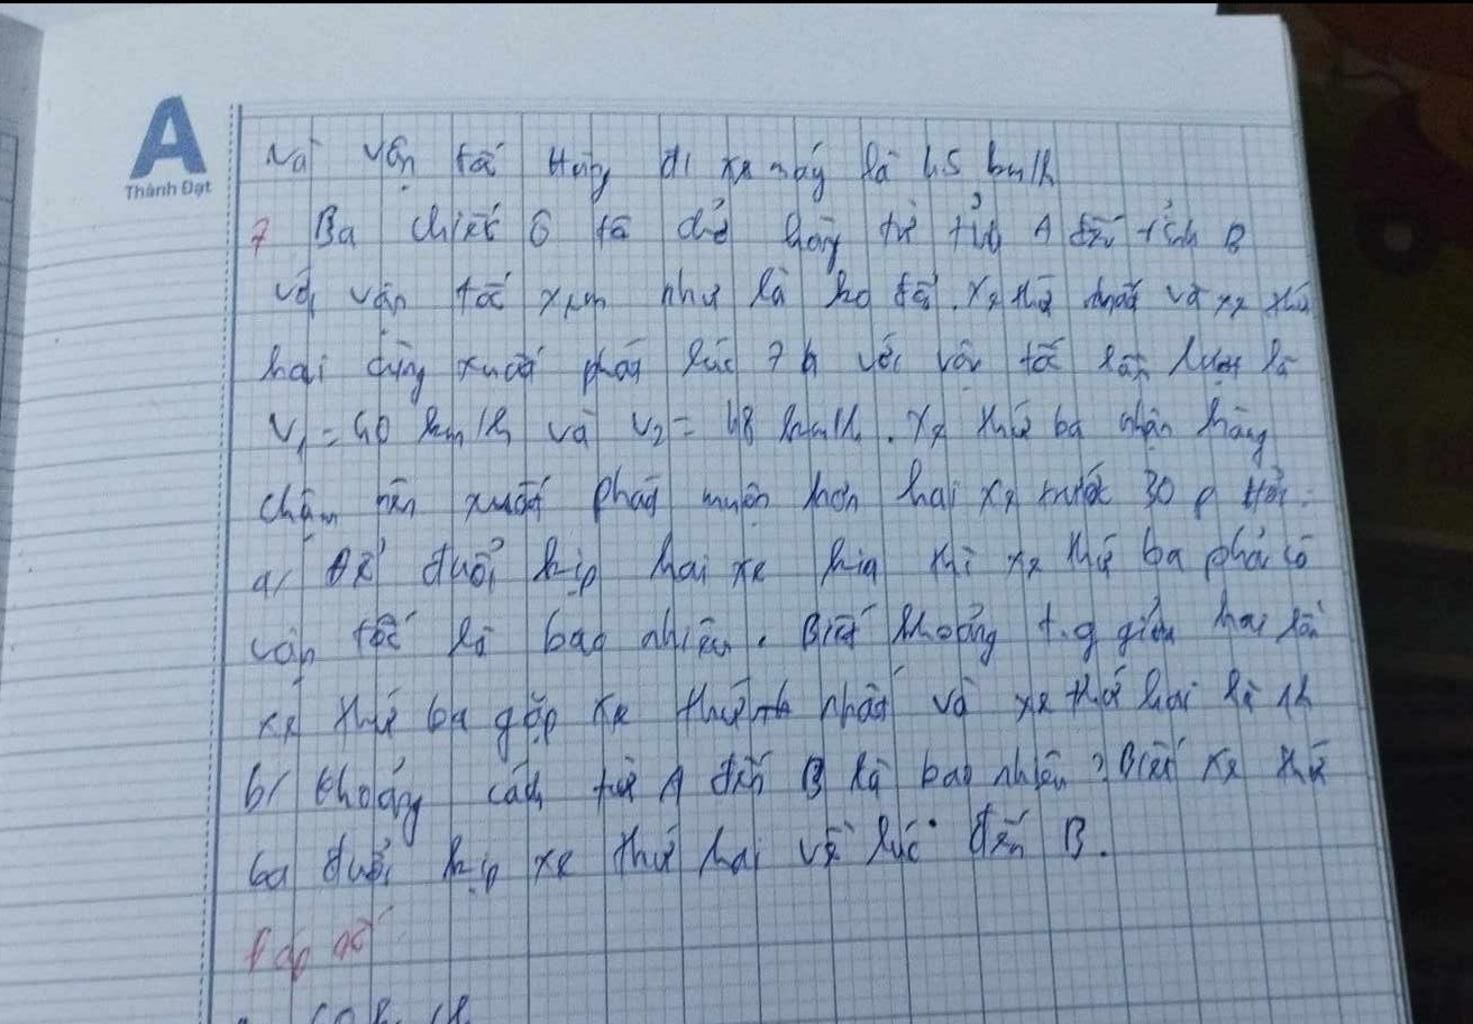 A
Thành Đạt
Và vận tốc Hùng đi xe máy là 45 km/h
7 Ba chiếc ô tô chở hàng từ tỉnh A đến tỉnh B
với vận tốc xem như là ko đổi. Xe thứ nhất và xe thứ
hai cùng xuất phát lúc 7h với vận tốc lần lượt là
V₁ = 40 km/h và V₂ = 48 km/h. Xe thứ ba nhận hàng
chậm nên xuất phát muộn hơn hai xe trước 30 p Hỏi:
a/ Để đuổi kịp hai xe kia thì xe thứ ba phải có
vận tốc là bao nhiêu. Biết khoảng t.g giữa hai lần
xe thứ ba gặp xe thứ nhất và xe thứ hai là 1h
b/ Khoảng cách từ A đến B là bao nhiêu? Biết xe thứ
ba đuổi kịp xe thứ hai về lúc đến B.
Đáp số